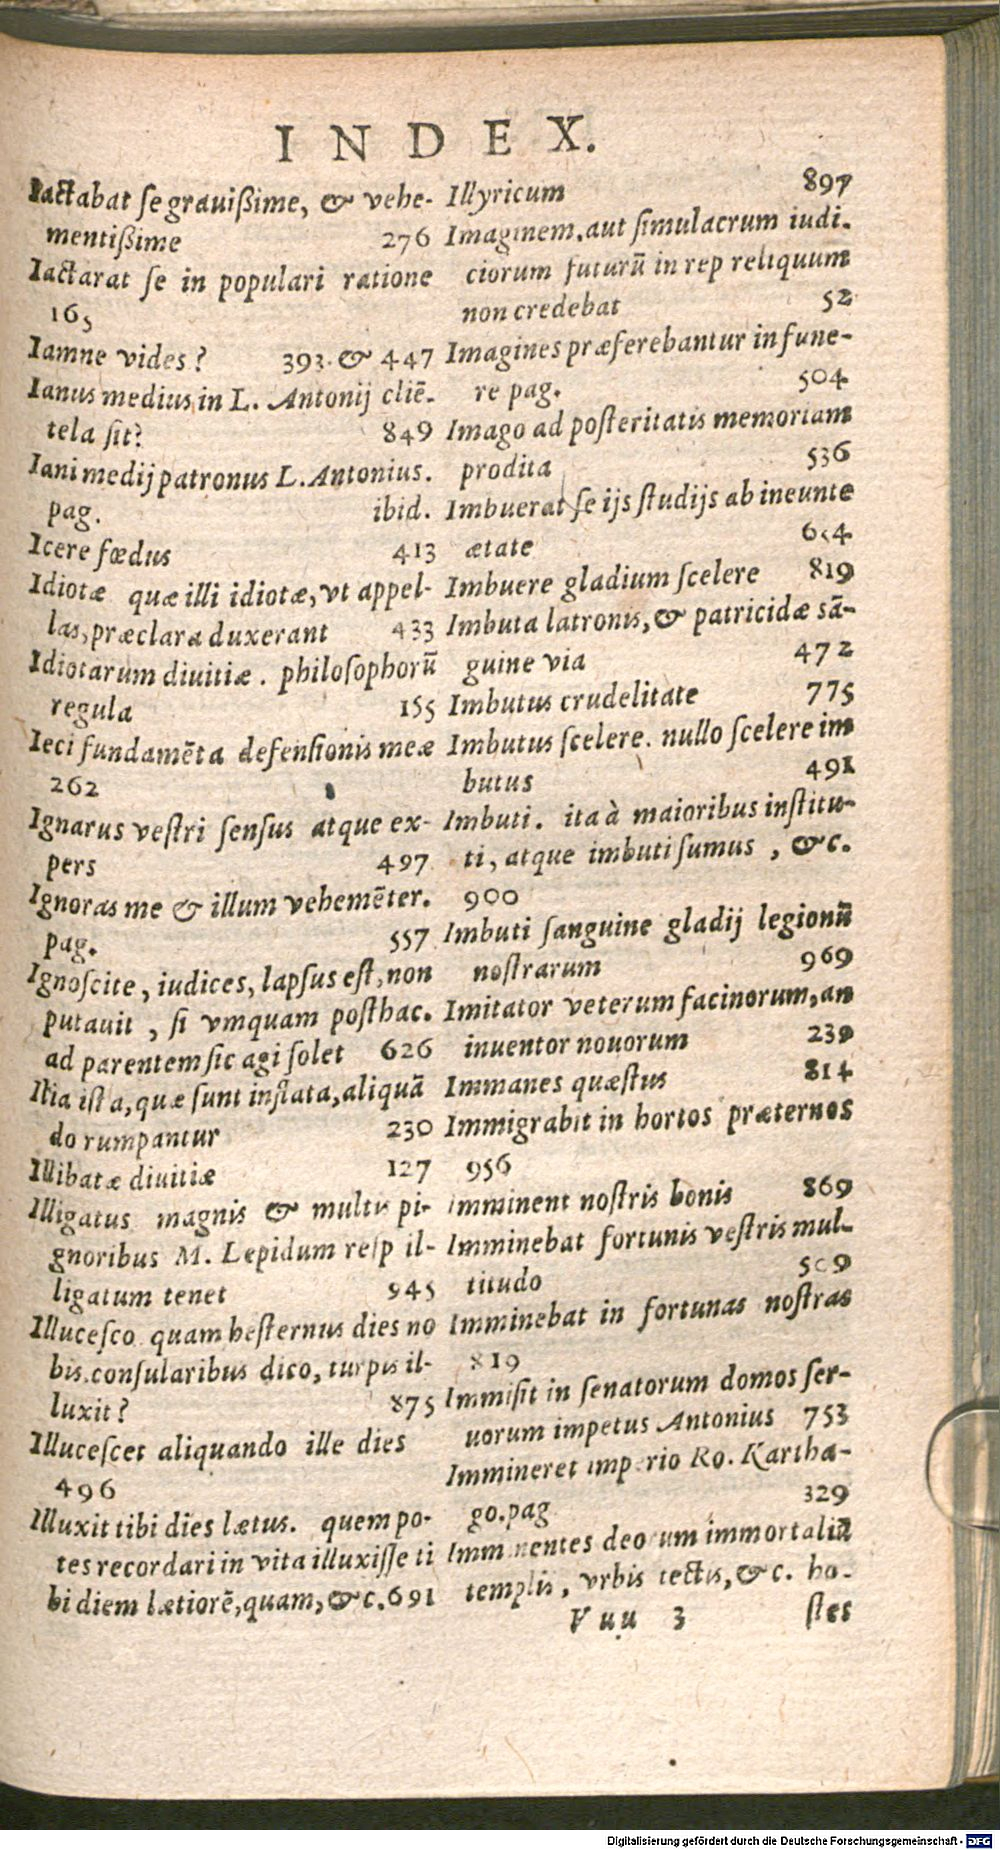 INDEX.
Iactabat ſe grauißime, & vehe-
mentißime 276
Iactarat ſe in populari ratione
165
Iamne vides? 393. & 447
Ianus medius in L. Antonij cliē-
tela ſit? 849
Iani medij patronus L. Antonius.
pag. ibid.
Icere fœdus 413
Idiotæ quæ illi idiotæ, vt appel-
las, præclara duxerant 433
Idiotarum diuitiæ. philoſophorū
regula 155
Ieci fundamēta defenſionis meæ
262
Ignarus veſtri ſenſus atque ex-
pers 497
Ignoras me & illum vehemēter.
pag. 557
Ignoſcite, iudices, lapſus eſt, non
putauit, ſi vmquam poſthac.
ad parentem ſic agi ſolet 626
Ilia iſta, quæ ſunt inflata, aliquā
do rumpantur 230
Illibatæ diuitiæ 127
Illigatus magnis & multis pi-
gnoribus M. Lepidum reſp il-
ligatum tenet 945
Illuceſco. quam heſternus dies no
bis. conſularibus dico, turpis il-
luxit? 875
Illuceſcet aliquando ille dies
496
Illuxit tibi dies lætus. quem po-
tes recordari in vita illuxiſſe ti
bi diem lætiorē, quam, &c. 691
Illyricum 897
Imaginem, aut ſimulacrum iudi-
ciorum futurū in rep reliquum
non credebat 52
Imagines præferebantur in fune-
re pag. 504
Imago ad poſteritatis memoriam
prodita 536
Imbuerat ſe ijs ſtudijs ab ineunte
ætate
Imbuere gladium ſcelere 819
Imbuta latronis, & patricidæ sā-
guine via 472
Imbutus crudelitate 775
Imbutus ſcelere. nullo ſcelere im
butus 491
Imbuti. ita à maioribus inſtitu-
ti, atque imbuti ſumus, &c.
900
Imbuti ſanguine gladij legionū
noſtrarum 969
Imitator veterum facinorum, an
inuentor nouorum 239
Immanes quæſtus 814
Immigrabit in hortos præternos
956
Imminent noſtris bonis 869
Imminebat fortunis veſtris mul-
titudo 509
Imminebat in fortunas noſtras
819
Immiſit in ſenatorum domos ſer-
uorum impetus Antonius 753
Immineret imperio Ro. Kartha-
go. pag 329
Imminentes deorum immortaliū
templis, vrbis tectis, &c. ho-
Vuu 3 ſtes
Digitalisierung gefördert durch die Deutsche Forschungsgemeinschaft - DFG